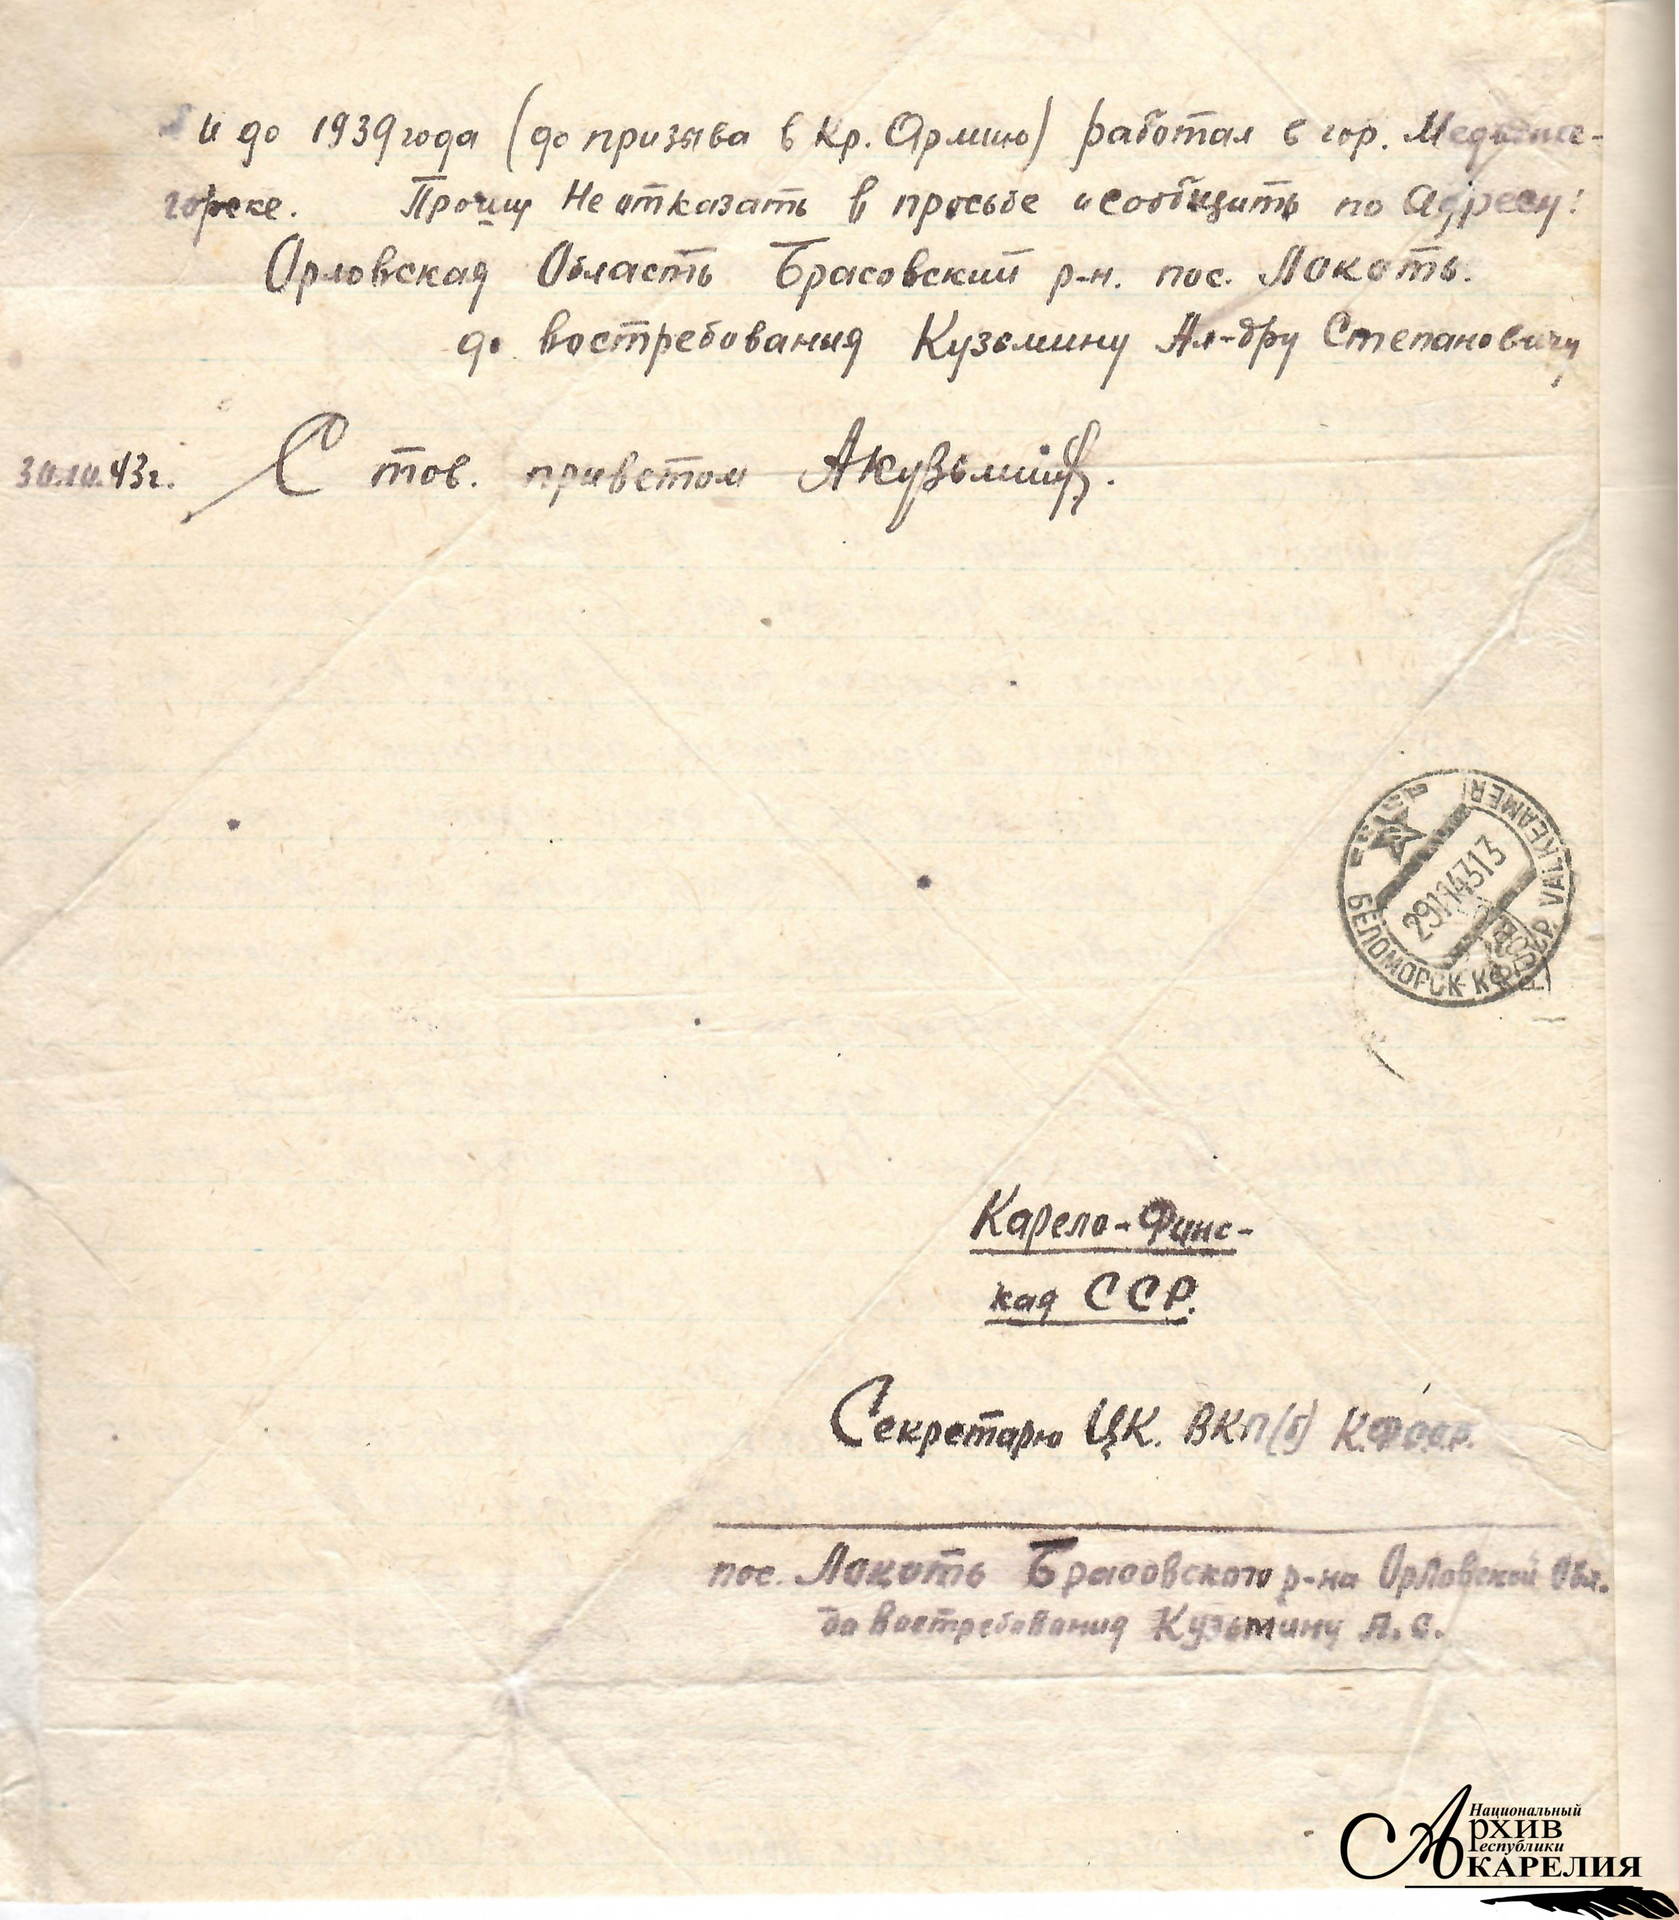 и до 1939 года (до призыва в Кр. Армию) работал в гор. Медвеже-
горске. Прошу не отказать в просьбе и сообщить по адресу:
Орловская Область Брасовский р-н. пос. Локоть.
до востребования Кузьмину Ал-дру Степановичу
30.10.43г. С тов. приветом АКузьмин.
БЕЛОМОРСК КФССР. VALKEAMERI
29114313
Карело-Финс-
кая ССР.
Секретарю ЦК. ВКП(б) К.Фсср.
пос. Локоть Брасовского р-на Орловской Обл.
до востребования Кузьмину А.С.
Национальный
Архив
Республики
КАРЕЛИЯ